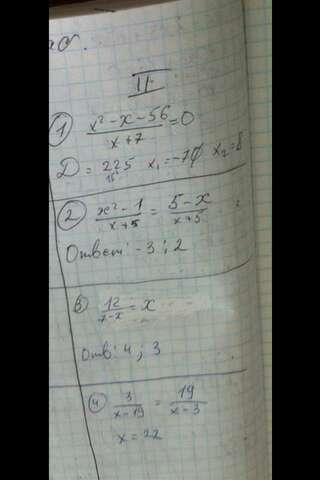 II
① x² - x - 56 / x + 7 = 0
D = 225 x₁ = -7 x₂ = 8
15²
② x² - 1 / x + 5 = 5 - x / x + 5
Ответ: -3 ; 2
③ 12 / 7 - x = x
Отв: 4 ; 3
④ 3 / x - 19 = 19 / x - 3
x = 22